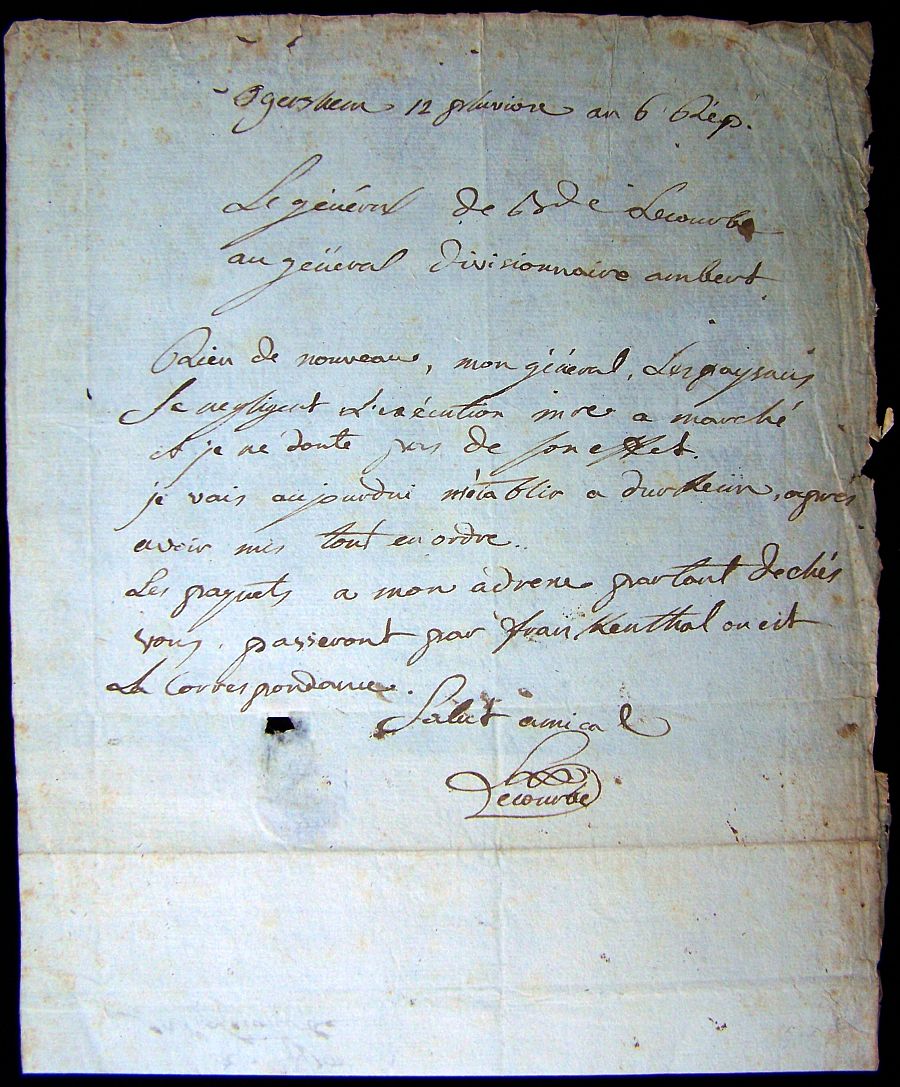 Ogersheim 12 pluviose an 6 Rép.
Le général de Bde Lecourbe
au général divisionnaire ambert
Rien de nouveau, mon général, Les paysans
Se negligent L'exécution mre a marché
et je ne doute pas de son effet.
je vais aujourdui m'établir a durkeim, apres
avoir mis tout en ordre.
Les paquets a mon adresse partant de chés
vous, passeront par frankenthal ou est
La Correspondance.
Salut amical
Lecourbe